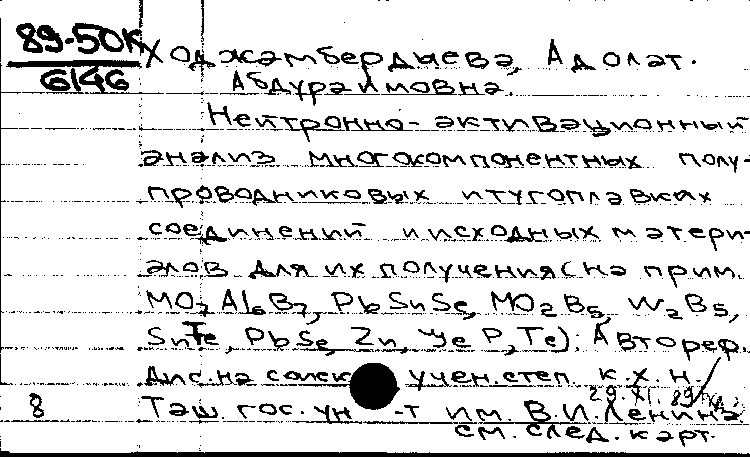 89-50К Ходжамбердыева, Адолат.
6146 Абдураимовна.
Нейтронно-активационный
анализ многокомпонентных полу-
проводниковых и тугоплавких
соединений и исходных матери-
алов для их получения (на прим.
MO7 Al6B7, PbSnSe, MO2B5, W2B5,
SnTe, PbSe, Zn, P, Te); Автореф.
Дис. на соиск учен. степ. к. х. н. /
29.XI.89
8 Таш. гос. ун -т им. В.И.Ленина
см. след. карт.